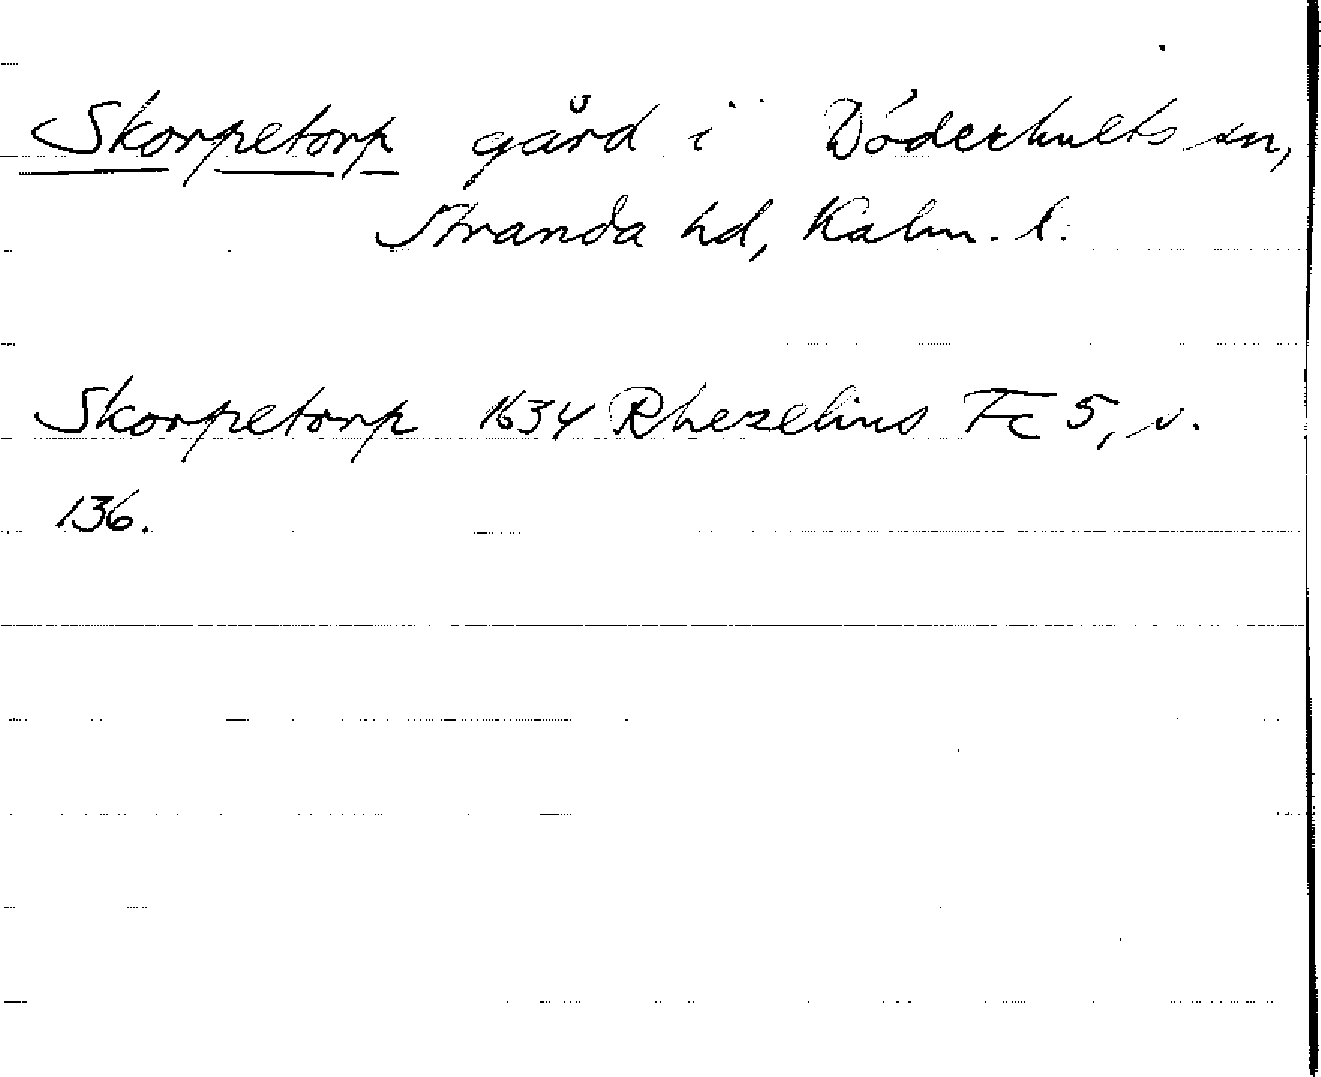 Skorpetorp gård i Döderhults sn,
Stranda hd, Kalm. l.
Skorpetorp 1634 Rhezelius Fc 5, s.
136.